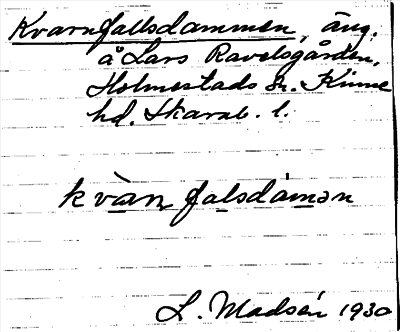 Kvarnfallsdammen, äng.
å Lars Ravelsgården,
Holmestads sn. Kinne
hd. Skarab. l.
kvàn falsdámən
L. Madsén 1930